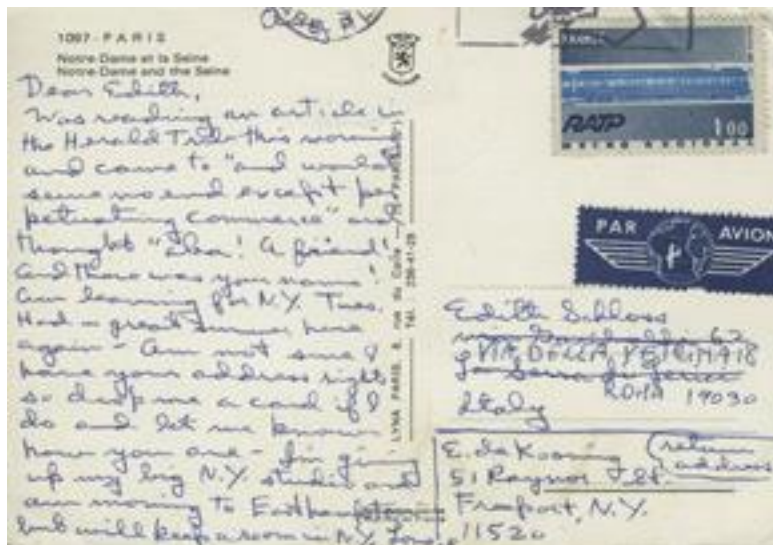 1097 - PARIS
Notre-Dame et la Seine
Notre-Dame and the Seine
Dear Edith,
Was reading an article in
the Herald Trib this morning
and came to "and would
serve no end except per
petuating commerce" and
thought "Aha! A friend"
And there was your name!
Am leaving for N.Y. Tues.
Had a great summer here
again - Am not sure I
have your address right
so drop me a card if I
do and let me know
how you are - I'm giving
up my big N.Y. studio and
am moving to Easthampton
but will keep a room in N.Y. Love, E
LYNA PARIS, 8, rue du Caire
TEL. 236-41-28
FRANCE
RATP
1.00
METRO REGIONAL
PAR AVION
Edith Schloss
VIA DELLA VETRINA 18
ROMA 19030
Italy
E. de Kooning (return
51 Raynor St. address)
Freeport, N.Y.
11520